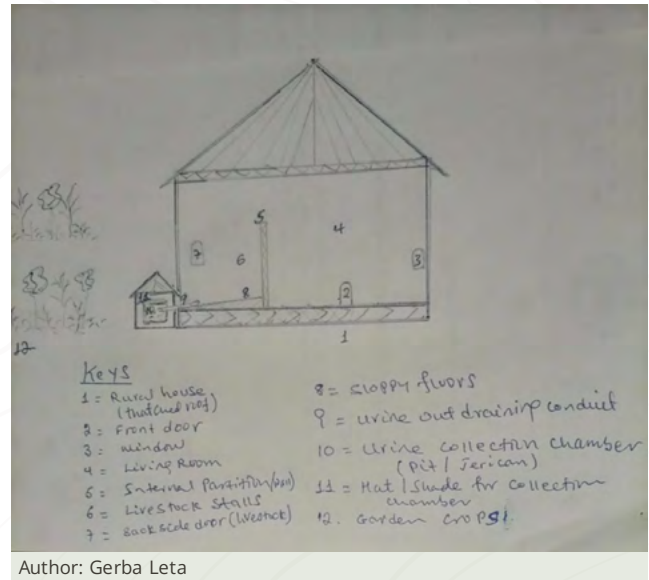 5
4
7
6
3
8
9
2
11
10
1
12
Keys
1 = Rural house
(thatched roof)
2 = Front door
3 = window
4 = Living Room
5 = Internal Partition
6 = Livestock Stalls
7 = Back side door (livestock)
8 = Sloppy floors
9 = Urine out draining conduit
10 = Urine collection chamber
(Pit / Jerican)
11 = Hat / Shade for collection
chamber
12. Garden crops
Author: Gerba Leta